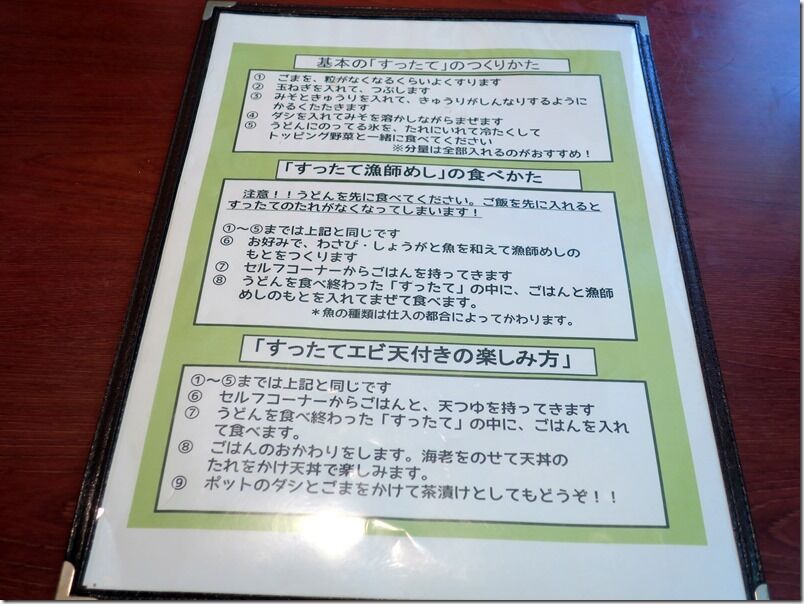 基本の「すったて」のつくりかた
① ごまを、粒がなくなるくらいよくすります
② 玉ねぎを入れて、つぶします
③ みそときゅうりを入れて、きゅうりがしんなりするように
かるくたたきます
④ ダシを入れてみそを溶かしながらまぜます
⑤ うどんにのってる氷を、たれにいれて冷たくして
トッピング野菜と一緒に食べてください
※分量は全部入れるのがおすすめ！
「すったて漁師めし」の食べかた
注意！！うどんを先に食べてください。ご飯を先に入れると
すったてのたれがなくなってしまいます！
①～⑤までは上記と同じです
⑥ お好みで、わさび・しょうがと魚を和えて漁師めしの
もとをつくります
⑦ セルフコーナーからごはんを持ってきます
⑧ うどんを食べ終わった「すったて」の中に、ごはんと漁師
めしのもとを入れてまぜて食べます。
＊魚の種類は仕入の都合によってかわります。
「すったてエビ天付きの楽しみ方」
①～⑤までは上記と同じです
⑥ セルフコーナーからごはんと、天つゆを持ってきます
⑦ うどんを食べ終わった「すったて」の中に、ごはんを入れ
て食べます。
⑧ ごはんのおかわりをします。海老をのせて天丼の
たれをかけ天丼で楽しみます。
⑨ ポットのダシとごまをかけて茶漬けとしてもどうぞ！！